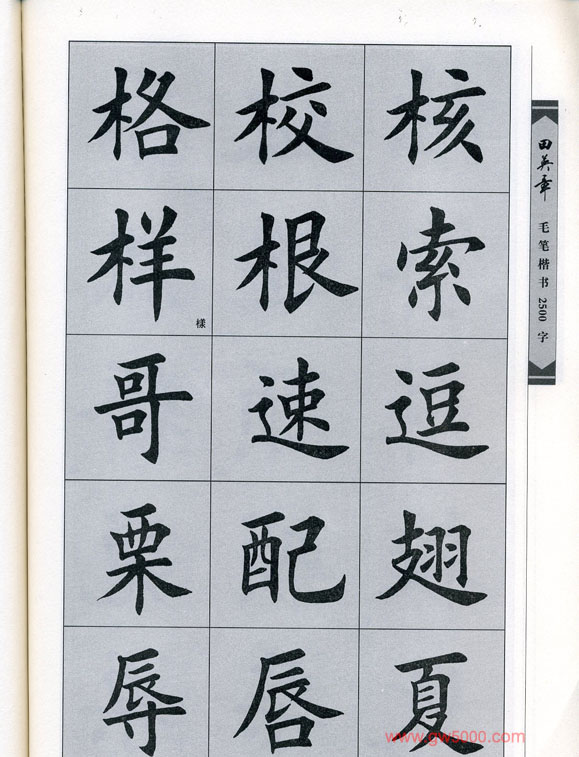 格 校 核
样 根 索
樣
哥 速 逗
栗 配 翅
辱 唇 夏
田英章
毛笔楷书2500字
www.gw5000.com